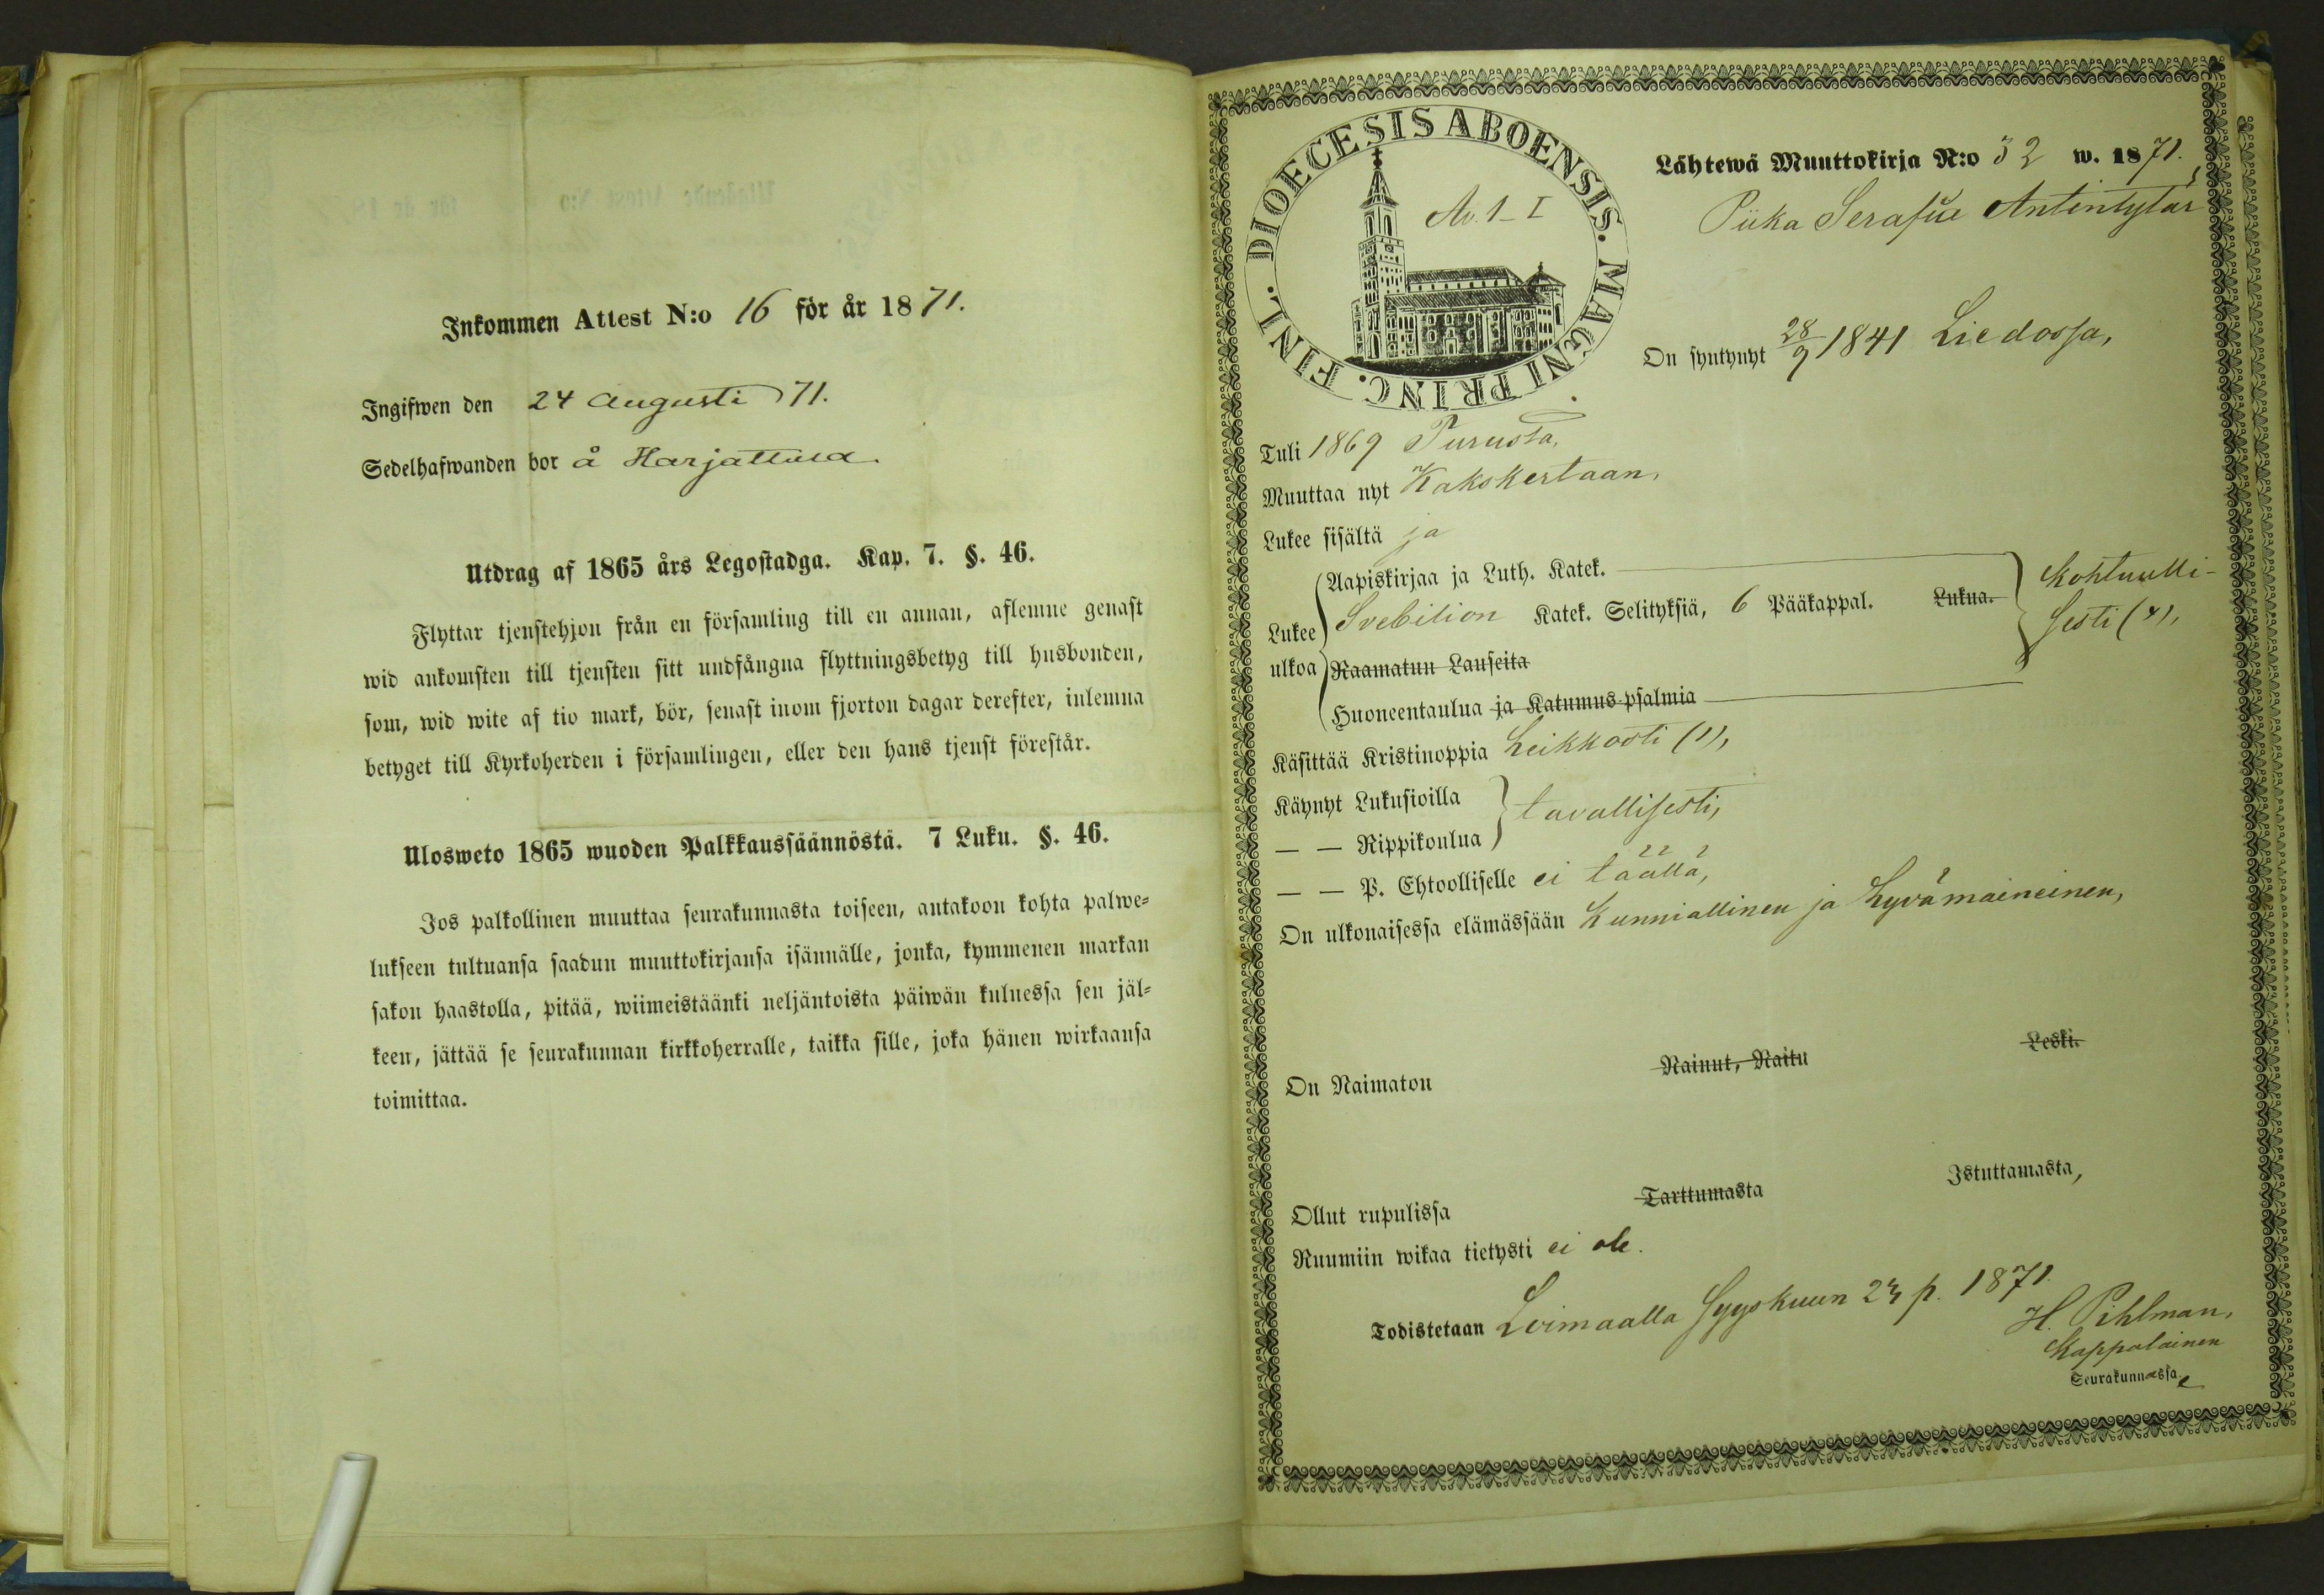 Inkommen Attest N:o 16 för år 1871.
Ingifwen den 24 Augusti 71.
Sedelhafwanden bor å Harjattula.
Utdrag af 1865 års Legostadga. Kap. 7. §. 46.
Flyttar tjenstehjon från en församling till en annan, aflemne genast
wid ankomsten till tjensten sitt undfångna flyttningsbetyg till husbonden,
som, wid wite af tio mark, bör, senast inom fjorton dagar derefter, inlemna
betyget till Kyrkoherden i församlingen, eller den hans tjenst förestår.
Ulosweto 1865 wuoden Palkkaussäännöstä. 7 Luku. §. 46.
Jos palkollinen muuttaa seurakunnasta toiseen, antakoon kohta palwe-
lukseen tultuansa saadun muuttokirjansa isännälle, jonka, kymmenen markan
sakon haastolla, pitää, wiimeistäänki neljäntoista päiwän kuluessa sen jäl-
keen, jättää se seurakunnan kirkkoherralle, taikka sille, joka hänen wirkaansa
toimittaa.
DIOECESIS ABOENSIS. MAGNI PRINC. FINL.
Av. 1-I
Lähtewä Muuttokirja N:o 32 w. 1871.
Piika Serafia Antintytär
On syntynyt 28/9 1841 Liedossa,
Tuli 1869 Turusta,
Muuttaa nyt Kakskertaan,
Lukee sisältä ja
Lukee ulkoa
Aapiskirjaa ja Luth. Katek.
Svebilion Katek. Selityksiä, 6 Pääkappal. Lukua.
Raamatun Lauseita
Huoneentaulua ja Katumus-psalmia
Kohtuulli-
sesti (4),
Käsittää Kristinoppia heikkosti (1),
Käynyt Lukusioilla
— — Rippikoulua
tavallisesti,
— — P. Ehtoolliselle ei täällä,
On ulkonaisessa elämässään kunniallinen ja hyvämaineinen,
On Naimaton Nainut, Naitu Leski.
Ollut rupulissa Tarttumasta Istuttamasta,
Ruumiin wikaa tietysti ei ole.
Todistetaan Loimaalla Syyskuun 23 p. 1871.
H. Pihlman,
Kappalainen
Seurakunnassa.